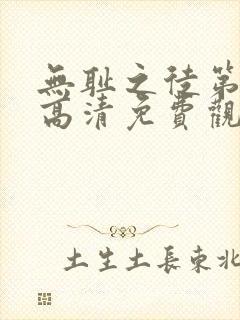 無耻之徒第
高清免費觀
土生土長東北